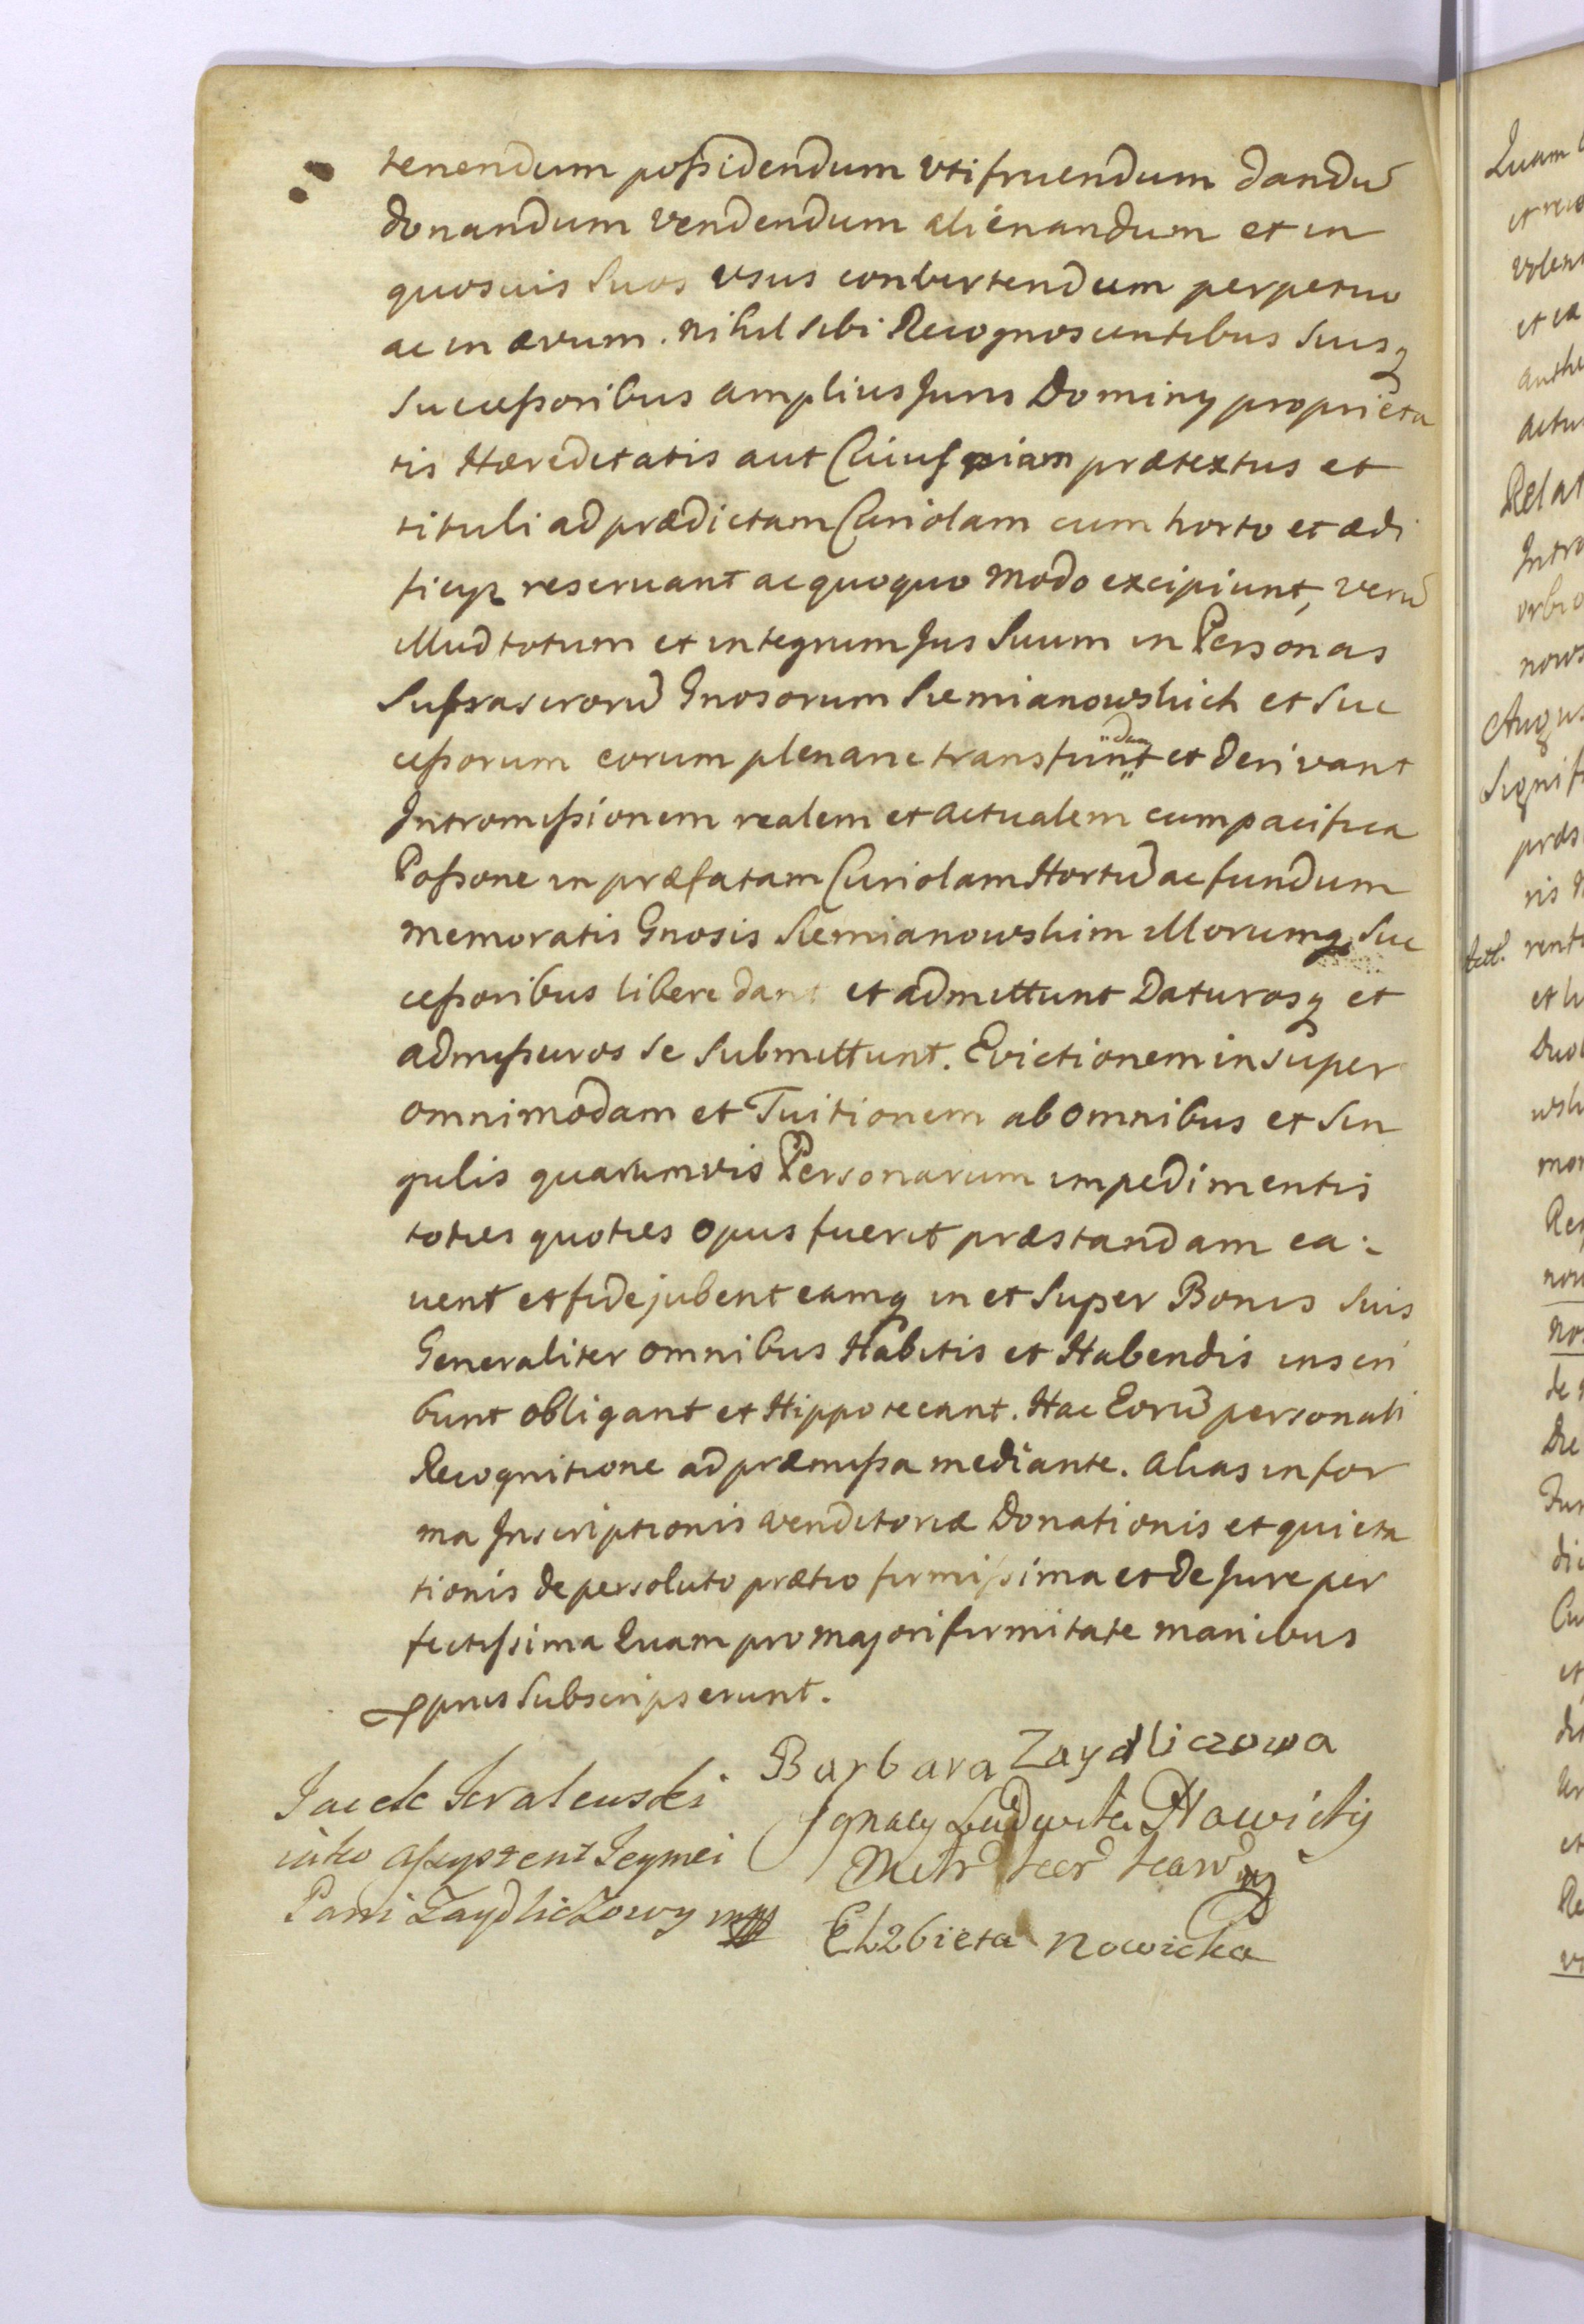 tenendum possidendum utifruendum dandū
donandum vendendum alienandum et in
quosuis suos usus convertendum perpetuo
ac in ævum. nihil sibi Recognoscentibus suisq
successoribus amplius Juris Dominy proprieta
tis Hæreditatis aut Cuiuspiam prætextus et
tituli ad prædictam Curiolam cum horto et ædi
ficys reseruant ac quoquo modo excipiunt, verū
illud totum et integrum Jus suum in Personas
suprascrorū Gnosorum Siemianowskich et suc
cessorum eorum plenarie transfundunt et derivant
Intromissionem realem et actualem cum pacifica
Possone in præfatam Curiolam Hortū ac fundum
memoratis Gnosis Siemianowskim illorumq suc
cessoribus libere dant et admittunt Daturosq et
admissuros se submittunt. Evictionem insuper
omnimodam et Tuitionem ab omnibus et sin
gulis quarumvis Personarum impedimentis
toties quoties opus fuerit præstandam ca:
uent et fidejubent eamq in et super Bonis suis
Generaliter omnibus Habitis et Habendis inscri
bunt obligant et Hippotecant. Hac Eorū personali
Recognitione ad præmissa mediante. alias in for
ma Inscriptionis venditoriæ Donationis et quieta
tionis de persoluto prætio firmissima et de Jure per
fectissima Quam pro majori firmitate manibus
pprus subscripserunt.
Barbara Zaydliczowa
Jacek
iako assystent Jeymci
Pani Zaydliczowy mpp
Ignacy Ludwik Nowicky
Elzbieta Nowicka